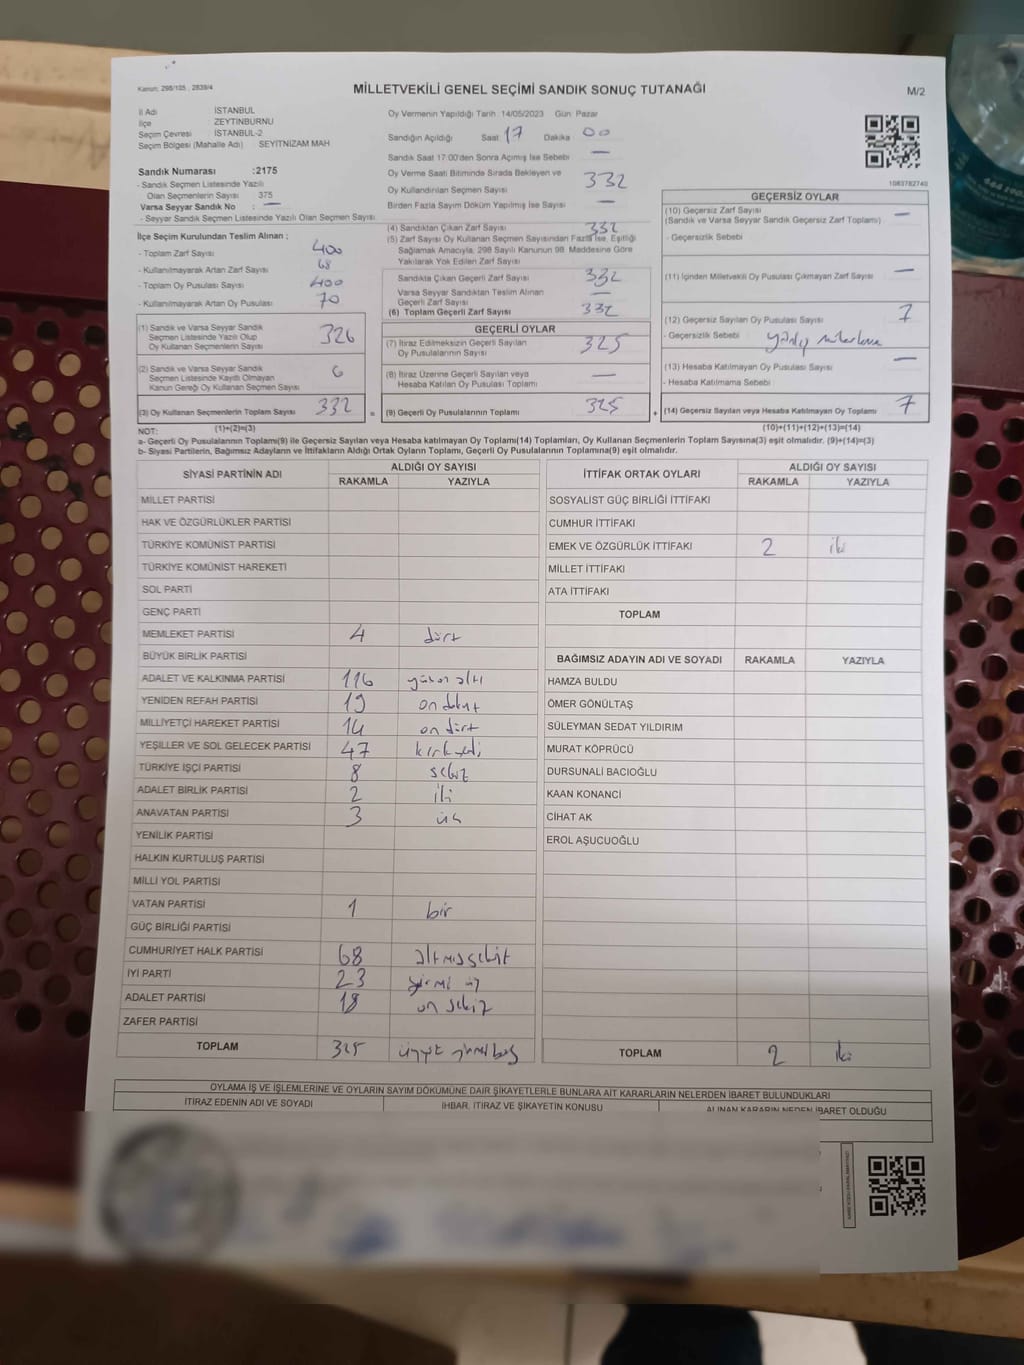 Kanun: 298/105 , 2839/4
MİLLETVEKİLİ GENEL SEÇİMİ SANDIK SONUÇ TUTANAĞI
M/2
İl Adı İSTANBUL
İlçe ZEYTİNBURNU
Seçim Çevresi İSTANBUL-2
Seçim Bölgesi (Mahalle Adı) SEYİTNİZAM MAH
Sandık Numarası :2175
- Sandık Seçmen Listesinde Yazılı
Olan Seçmenlerin Sayısı 375
Varsa Seyyar Sandık No : —
- Seyyar Sandık Seçmen Listesinde Yazılı Olan Seçmen Sayısı
İlçe Seçim Kurulundan Teslim Alınan ;
- Toplam Zarf Sayısı 400
- Kullanılmayarak Artan Zarf Sayısı 68
- Toplam Oy Pusulası 400
- Kullanılmayarak Artan Oy Pusulası 70
(1) Sandık ve Varsa Seyyar Sandık
Seçmen Listesinde Yazılı Olup
Oy Kullanan Seçmenlerin Sayısı 326
(2) Sandık ve Varsa Seyyar Sandık
Seçmen Listesinde Kayıtlı Olmayan
Kanun Gereği Oy Kullanan Seçmen Sayısı 6
(3) Oy Kullanan Seçmenlerin Toplam Sayısı 332 =
(1)+(2)=(3)
Oy Vermenin Yapıldığı Tarih 14/05/2023 Gün: Pazar
Sandığın Açıldığı Saat: 17 Dakika 00
Sandık Saat 17:00'den Sonra Açımış İse Sebebi —
Oy Verme Saati Bitiminde Sırada Bekleyen ve
Oy Kullandırılan Seçmen Sayısı 332
Birden Fazla Sayım Döküm Yapılmış İse Sayısı —
(4) Sandıktan Çıkan Zarf Sayısı 332
(5) Zarf Sayısı Oy Kullanan Seçmen Sayısından Fazla İse, Eşitliği
Sağlamak Amacıyla, 298 Sayılı Kanunun 98. Maddesine Göre
Yakılarak Yok Edilen Zarf Sayısı
Sandıkta Çıkan Geçerli Zarf Sayısı 332
Varsa Seyyar Sandıktan Teslim Alınan
Geçerli Zarf Sayısı —
(6) Toplam Geçerli Zarf Sayısı 332
GEÇERLİ OYLAR
(7) İtiraz Edilmeksizin Geçerli Sayılan
Oy Pusulalarının Sayısı 325
(8) İtiraz Üzerine Geçerli Sayılan veya
Hesaba Katılan Oy Pusulası Toplamı —
(9) Geçerli Oy Pusulalarının Toplamı 325 +
1083782740
GEÇERSİZ OYLAR
(10) Geçersiz Zarf Sayısı —
(Sandık ve Varsa Seyyar Sandık Geçersiz Zarf Toplamı)
- Geçersizlik Sebebi
(11) İçinden Milletvekili Oy Pusulası Çıkmayan Zarf Sayısı —
(12) Geçersiz Sayılan Oy Pusulası Sayısı 7
- Geçersizlik Sebebi :
(13) Hesaba Katılmayan Oy Pusulası Sayısı —
- Hesaba Katılmama Sebebi
(14) Geçersiz Sayılan veya Hesaba Katılmayan Oy Toplamı 7
(10)+(11)+(12)+(13)=(14)
NOT:
a- Geçerli Oy Pusulalarının Toplamı(9) ile Geçersiz Sayılan veya Hesaba katılmayan Oy Toplamı(14) Toplamları, Oy Kullanan Seçmenlerin Toplam Sayısına(3) eşit olmalıdır. (9)+(14)=(3)
b- Siyasi Partilerin, Bağımsız Adayların ve İttifakların Aldığı Ortak Oyların Toplamı, Geçerli Oy Pusulalarının Toplamına(9) eşit olmalıdır.
SİYASİ PARTİNİN ADI ALDIĞI OY SAYISI
RAKAMLA YAZIYLA
MİLLET PARTİSİ
HAK VE ÖZGÜRLÜKLER PARTİSİ
TÜRKİYE KOMÜNİST PARTİSİ
TÜRKİYE KOMÜNİST HAREKETİ
SOL PARTİ
GENÇ PARTİ
MEMLEKET PARTİSİ 4 dört
BÜYÜK BİRLİK PARTİSİ
ADALET VE KALKINMA PARTİSİ 116 yüzon altı
YENİDEN REFAH PARTİSİ 19 on dokuz
MİLLİYETÇİ HAREKET PARTİSİ 14 on dört
YEŞİLLER VE SOL GELECEK PARTİSİ 47 kırk yedi
TÜRKİYE İŞÇİ PARTİSİ 8 sekiz
ADALET BİRLİK PARTİSİ 2 iki
ANAVATAN PARTİSİ 3 üç
YENİLİK PARTİSİ
HALKIN KURTULUŞ PARTİSİ
MİLLİ YOL PARTİSİ
VATAN PARTİSİ 1 bir
GÜÇ BİRLİĞİ PARTİSİ
CUMHURİYET HALK PARTİSİ 68 altmışsekiz
İYİ PARTİ 23 yirmi üç
ADALET PARTİSİ 18 on sekiz
ZAFER PARTİSİ
TOPLAM 325 üçyüz yirmibeş
İTTİFAK ORTAK OYLARI ALDIĞI OY SAYISI
RAKAMLA YAZIYLA
SOSYALİST GÜÇ BİRLİĞİ İTTİFAKI
CUMHUR İTTİFAKI
EMEK VE ÖZGÜRLÜK İTTİFAKI 2 iki
MİLLET İTTİFAKI
ATA İTTİFAKI
TOPLAM
BAĞIMSIZ ADAYIN ADI VE SOYADI RAKAMLA YAZIYLA
HAMZA BULDU
ÖMER GÖNÜLTAŞ
SÜLEYMAN SEDAT YILDIRIM
MURAT KÖPRÜCÜ
DURSUNALİ BACIOĞLU
KAAN KONANCİ
CİHAT AK
EROL AŞUCUOĞLU
TOPLAM 2 iki
OYLAMA İŞ VE İŞLEMLERİNE VE OYLARIN SAYIM DÖKÜMÜNE DAİR ŞİKAYETLERLE BUNLARA AİT KARARLARIN NELERDEN İBARET BULUNDUKLARI
İTİRAZ EDENİN ADI VE SOYADI İHBAR, İTİRAZ VE ŞİKAYETİN KONUSU ALINAN KARARIN NEDEN İBARET OLDUĞU